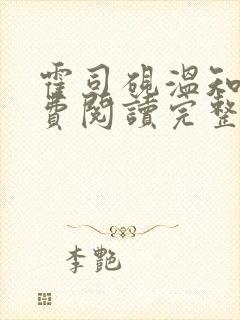 霍司硯溫知
費閱讀完整
李艷